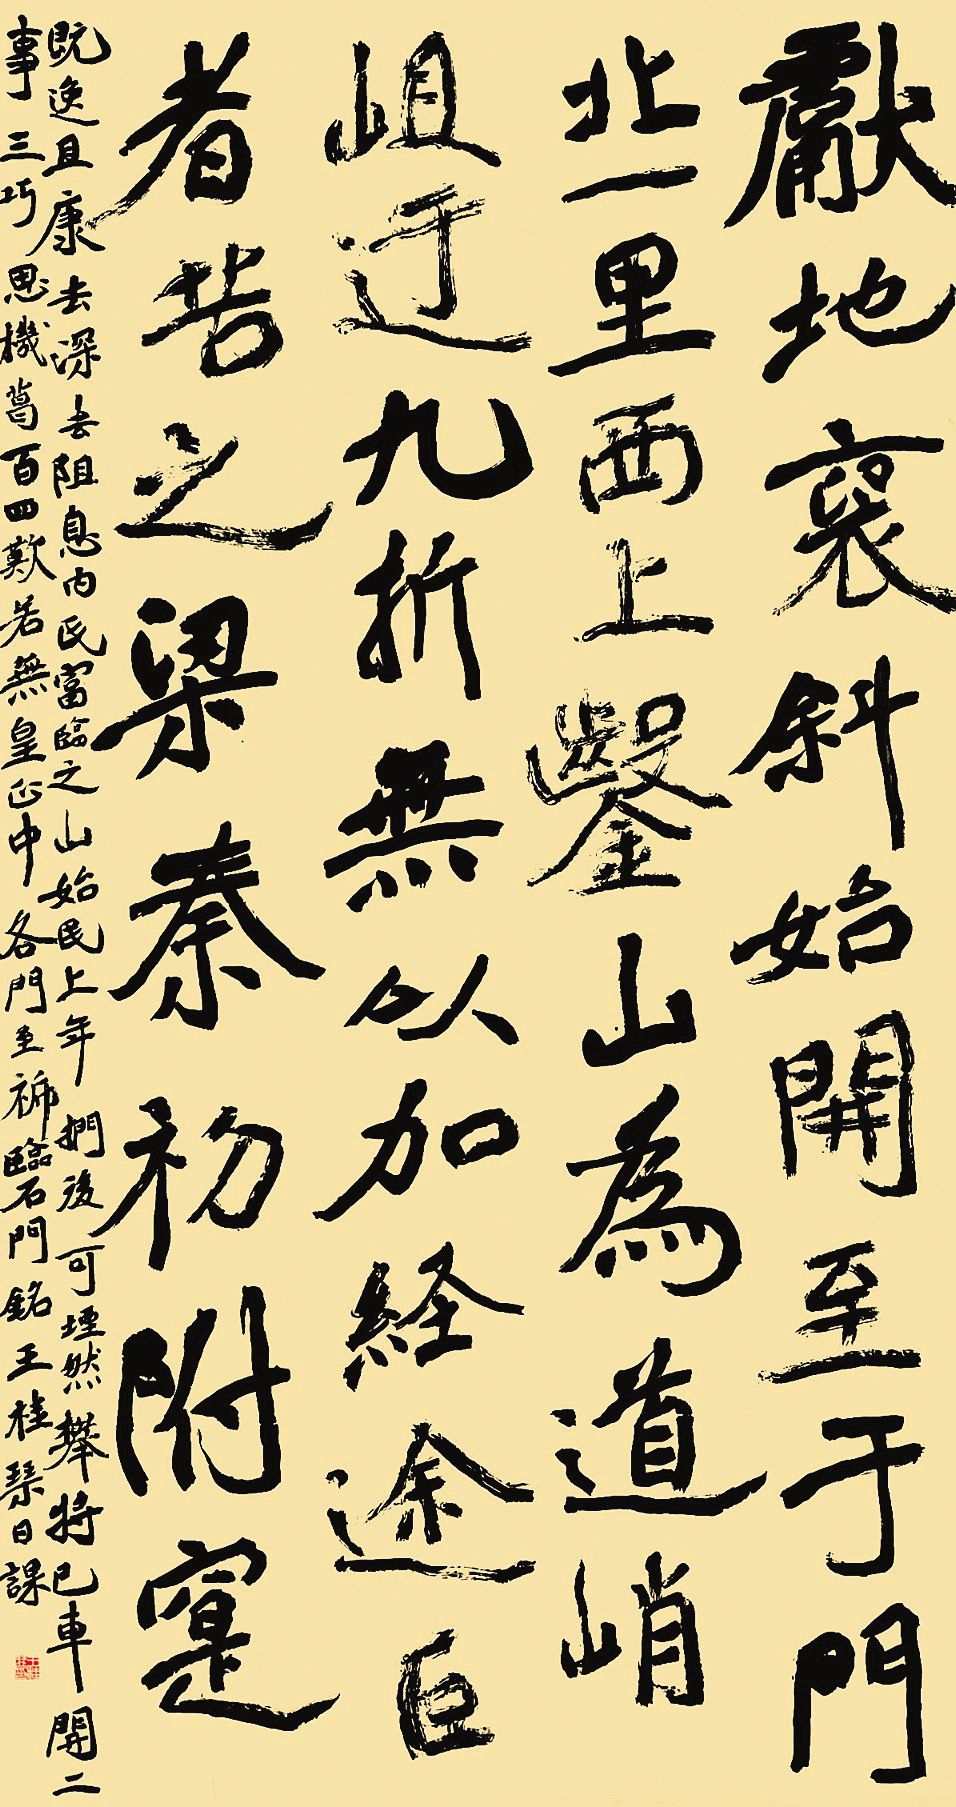 獻地襃斜始開至于門
北一里西上鑿山為道峭
岨迂九折無以加経途巨
者苦之梁秦初附寔
既逸且康去深去阻息内民富臨之山始民上年 捫後可堙然舉將已車開二
事三巧思機萬百四歎若無皇正中各門至褫臨石門銘王桂琴日課